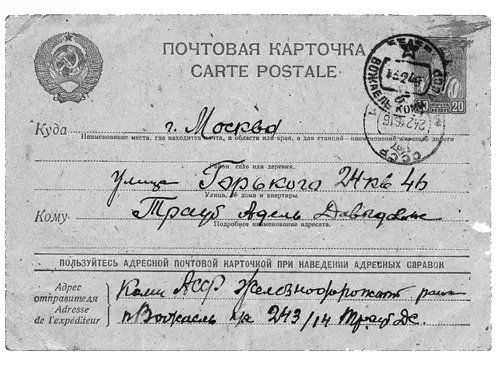 ПОЧТОВАЯ КАРТОЧКА
CARTE POSTALE
20
Куда г. Москва
Наименование места, где находится почта, и области или края, а для станций наименование железной дороги
Район, село или деревня.
Улица Горького 24 кв 46
Улица, № дома и квартиры.
Кому Трауб Адель Давыдовне
Подробное наименование адресата.
ПОЛЬЗУЙТЕСЬ АДРЕСНОЙ ПОЧТОВОЙ КАРТОЧКОЙ ПРИ НАВЕДЕНИИ АДРЕСНЫХ СПРАВОК
Адрес отправителя
Adresse de l'expéditeur
Коми АССР Железнодорожный
п 243/14 Трауб Дс.